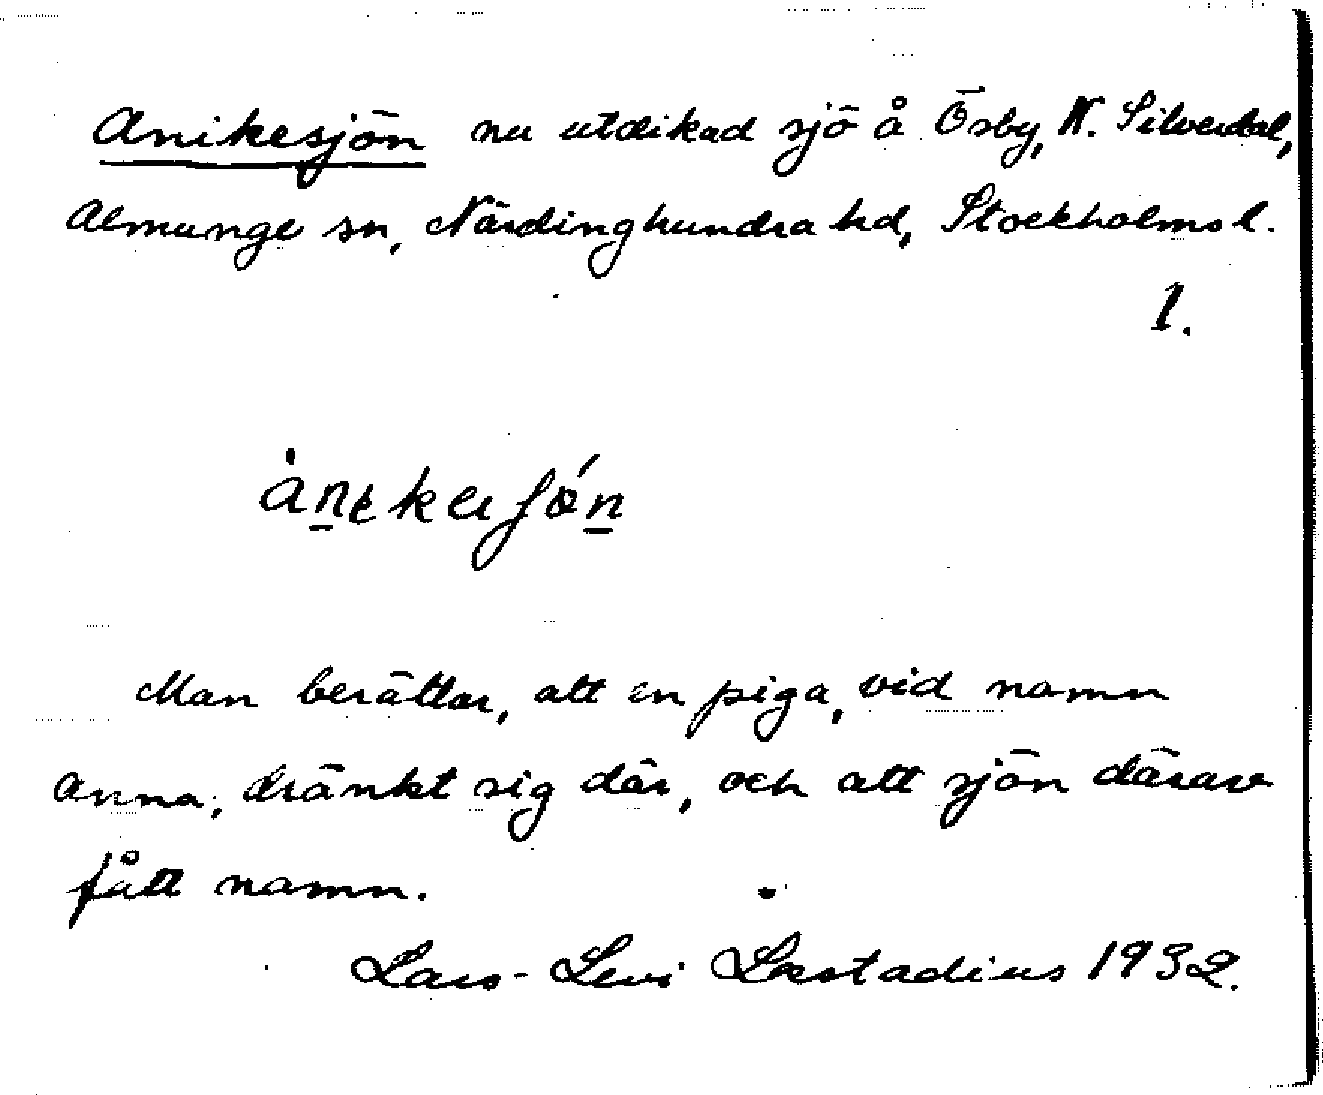 Anikesjön nu utdikad sjö å Ösby, N. Silverdal,
Almunge sn, Närdinghundra hd, Stockholms l.
1.
Man berättar, att en piga, vid namn
Anna, dränkt sig där, och att sjön därav
fått namn.
Lars-Levi Læstadius 1932.